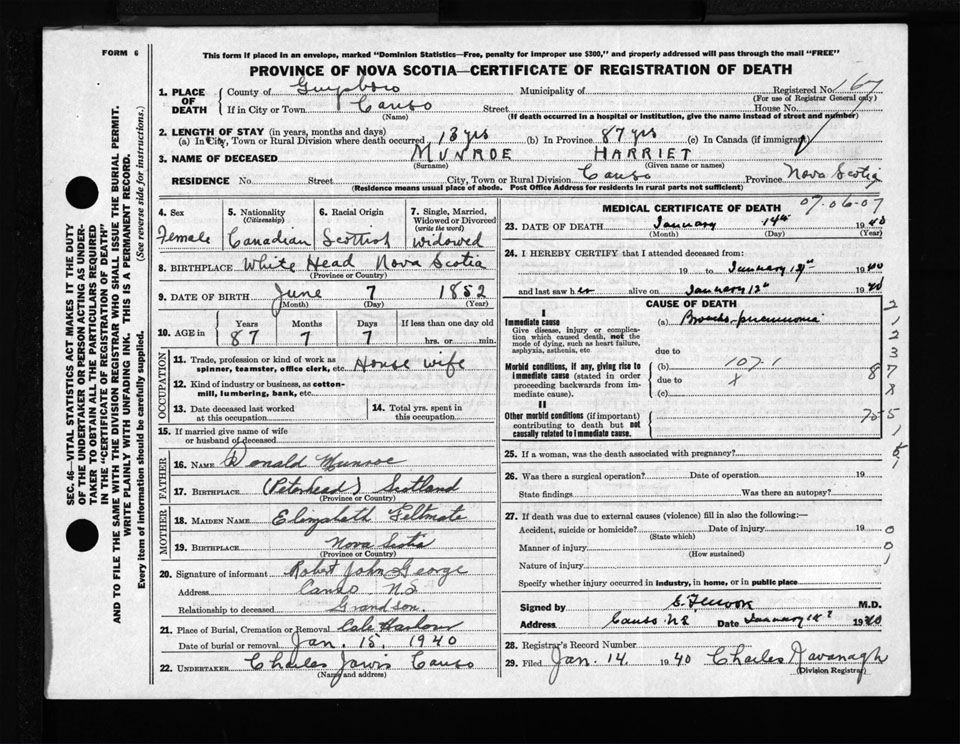 FORM 6
This form if placed in an envelope, marked "Dominion Statistics—Free, penalty for improper use $300," and properly addressed will pass through the mail "FREE"
PROVINCE OF NOVA SCOTIA—CERTIFICATE OF REGISTRATION OF DEATH
1. PLACE OF DEATH
County of Guysboro Municipality of Registered No. 167
(For use of Registrar General only)
If in City or Town Canso Street House No.
(Name) (If death occurred in a hospital or institution, give the name instead of street and number)
2. LENGTH OF STAY (in years, months and days)
(a) In City, Town or Rural Division where death occurred 13 yrs (b) In Province 87 yrs (c) In Canada (if immigrant)
3. NAME OF DECEASED MUNROE HARRIET
(Surname) (Given name or names)
RESIDENCE No. Street City, Town or Rural Division Canso Province Nova Scotia
(Residence means usual place of abode. Post Office Address for residents in rural parts not sufficient)
4. Sex 5. Nationality (Citizenship) 6. Racial Origin 7. Single, Married, Widowed or Divorced (write the word)
Female Canadian Scottish widowed
8. BIRTHPLACE White Head Nova Scotia
(Province or Country)
9. DATE OF BIRTH June 7 1852
(Month) (Day) (Year)
10. AGE in Years Months Days If less than one day old
87 7 7 hrs. or min.
OCCUPATION
11. Trade, profession or kind of work as spinner, teamster, office clerk, etc. House wife
12. Kind of industry or business, as cotton-mill, lumbering, bank, etc.
13. Date deceased last worked at this occupation
14. Total yrs. spent in this occupation
15. If married give name of wife or husband of deceased
FATHER
16. NAME Donald Munroe
17. BIRTHPLACE (Peterhead) Scotland
(Province or Country)
MOTHER
18. MAIDEN NAME Elizabeth Feltmate
19. BIRTHPLACE Nova Scotia
(Province or Country)
20. Signature of informant Robert John George
Address Canso N.S
Relationship to deceased Grandson.
21. Place of Burial, Cremation or Removal Cole Harbour
Date of burial or removal Jan. 15, 1940
22. UNDERTAKER Charles Jarvis Canso
(Name and address)
MEDICAL CERTIFICATE OF DEATH
07.06-07
23. DATE OF DEATH January 14th 1940
(Month) (Day) (Year)
24. I HEREBY CERTIFY that I attended deceased from:
19 to January 12th 1940
and last saw her alive on January 12th 1940
CAUSE OF DEATH
I
Immediate cause (a) Broncho-pneumonia
Give disease, injury or complication which caused death, not the mode of dying, such as heart failure, asphyxia, asthenia, etc
due to
Morbid conditions, if any, giving rise to immediate cause (stated in order proceeding backwards from immediate cause).
(b) 107.1
due to X
(c)
II
Other morbid conditions (if important) contributing to death but not causally related to immediate cause.
25. If a woman, was the death associated with pregnancy?
26. Was there a surgical operation? Date of operation 19
State findings Was there an autopsy?
27. If death was due to external causes (violence) fill in also the following:—
Accident, suicide or homicide? Date of injury 19
(State which)
Manner of injury
(How sustained)
Nature of injury
Specify whether injury occurred in industry, in home, or in public place
Signed by M.D.
Address Canso N.S. Date January 1940
28. Registrar's Record Number
29. Filed Jan. 14. 1940 Charles Kavanagh
(Division Registrar)
SEC. 46—VITAL STATISTICS ACT MAKES IT THE DUTY
OF THE UNDERTAKER OR PERSON ACTING AS UNDER-
TAKER TO OBTAIN ALL THE PARTICULARS REQUIRED
IN THE "CERTIFICATE OF REGISTRATION OF DEATH"
AND TO FILE THE SAME WITH THE DIVISION REGISTRAR WHO SHALL ISSUE THE BURIAL PERMIT.
WRITE PLAINLY WITH UNFADING INK. THIS IS A PERMANENT RECORD.
Every item of information should be carefully supplied. (See reverse side for instructions.)